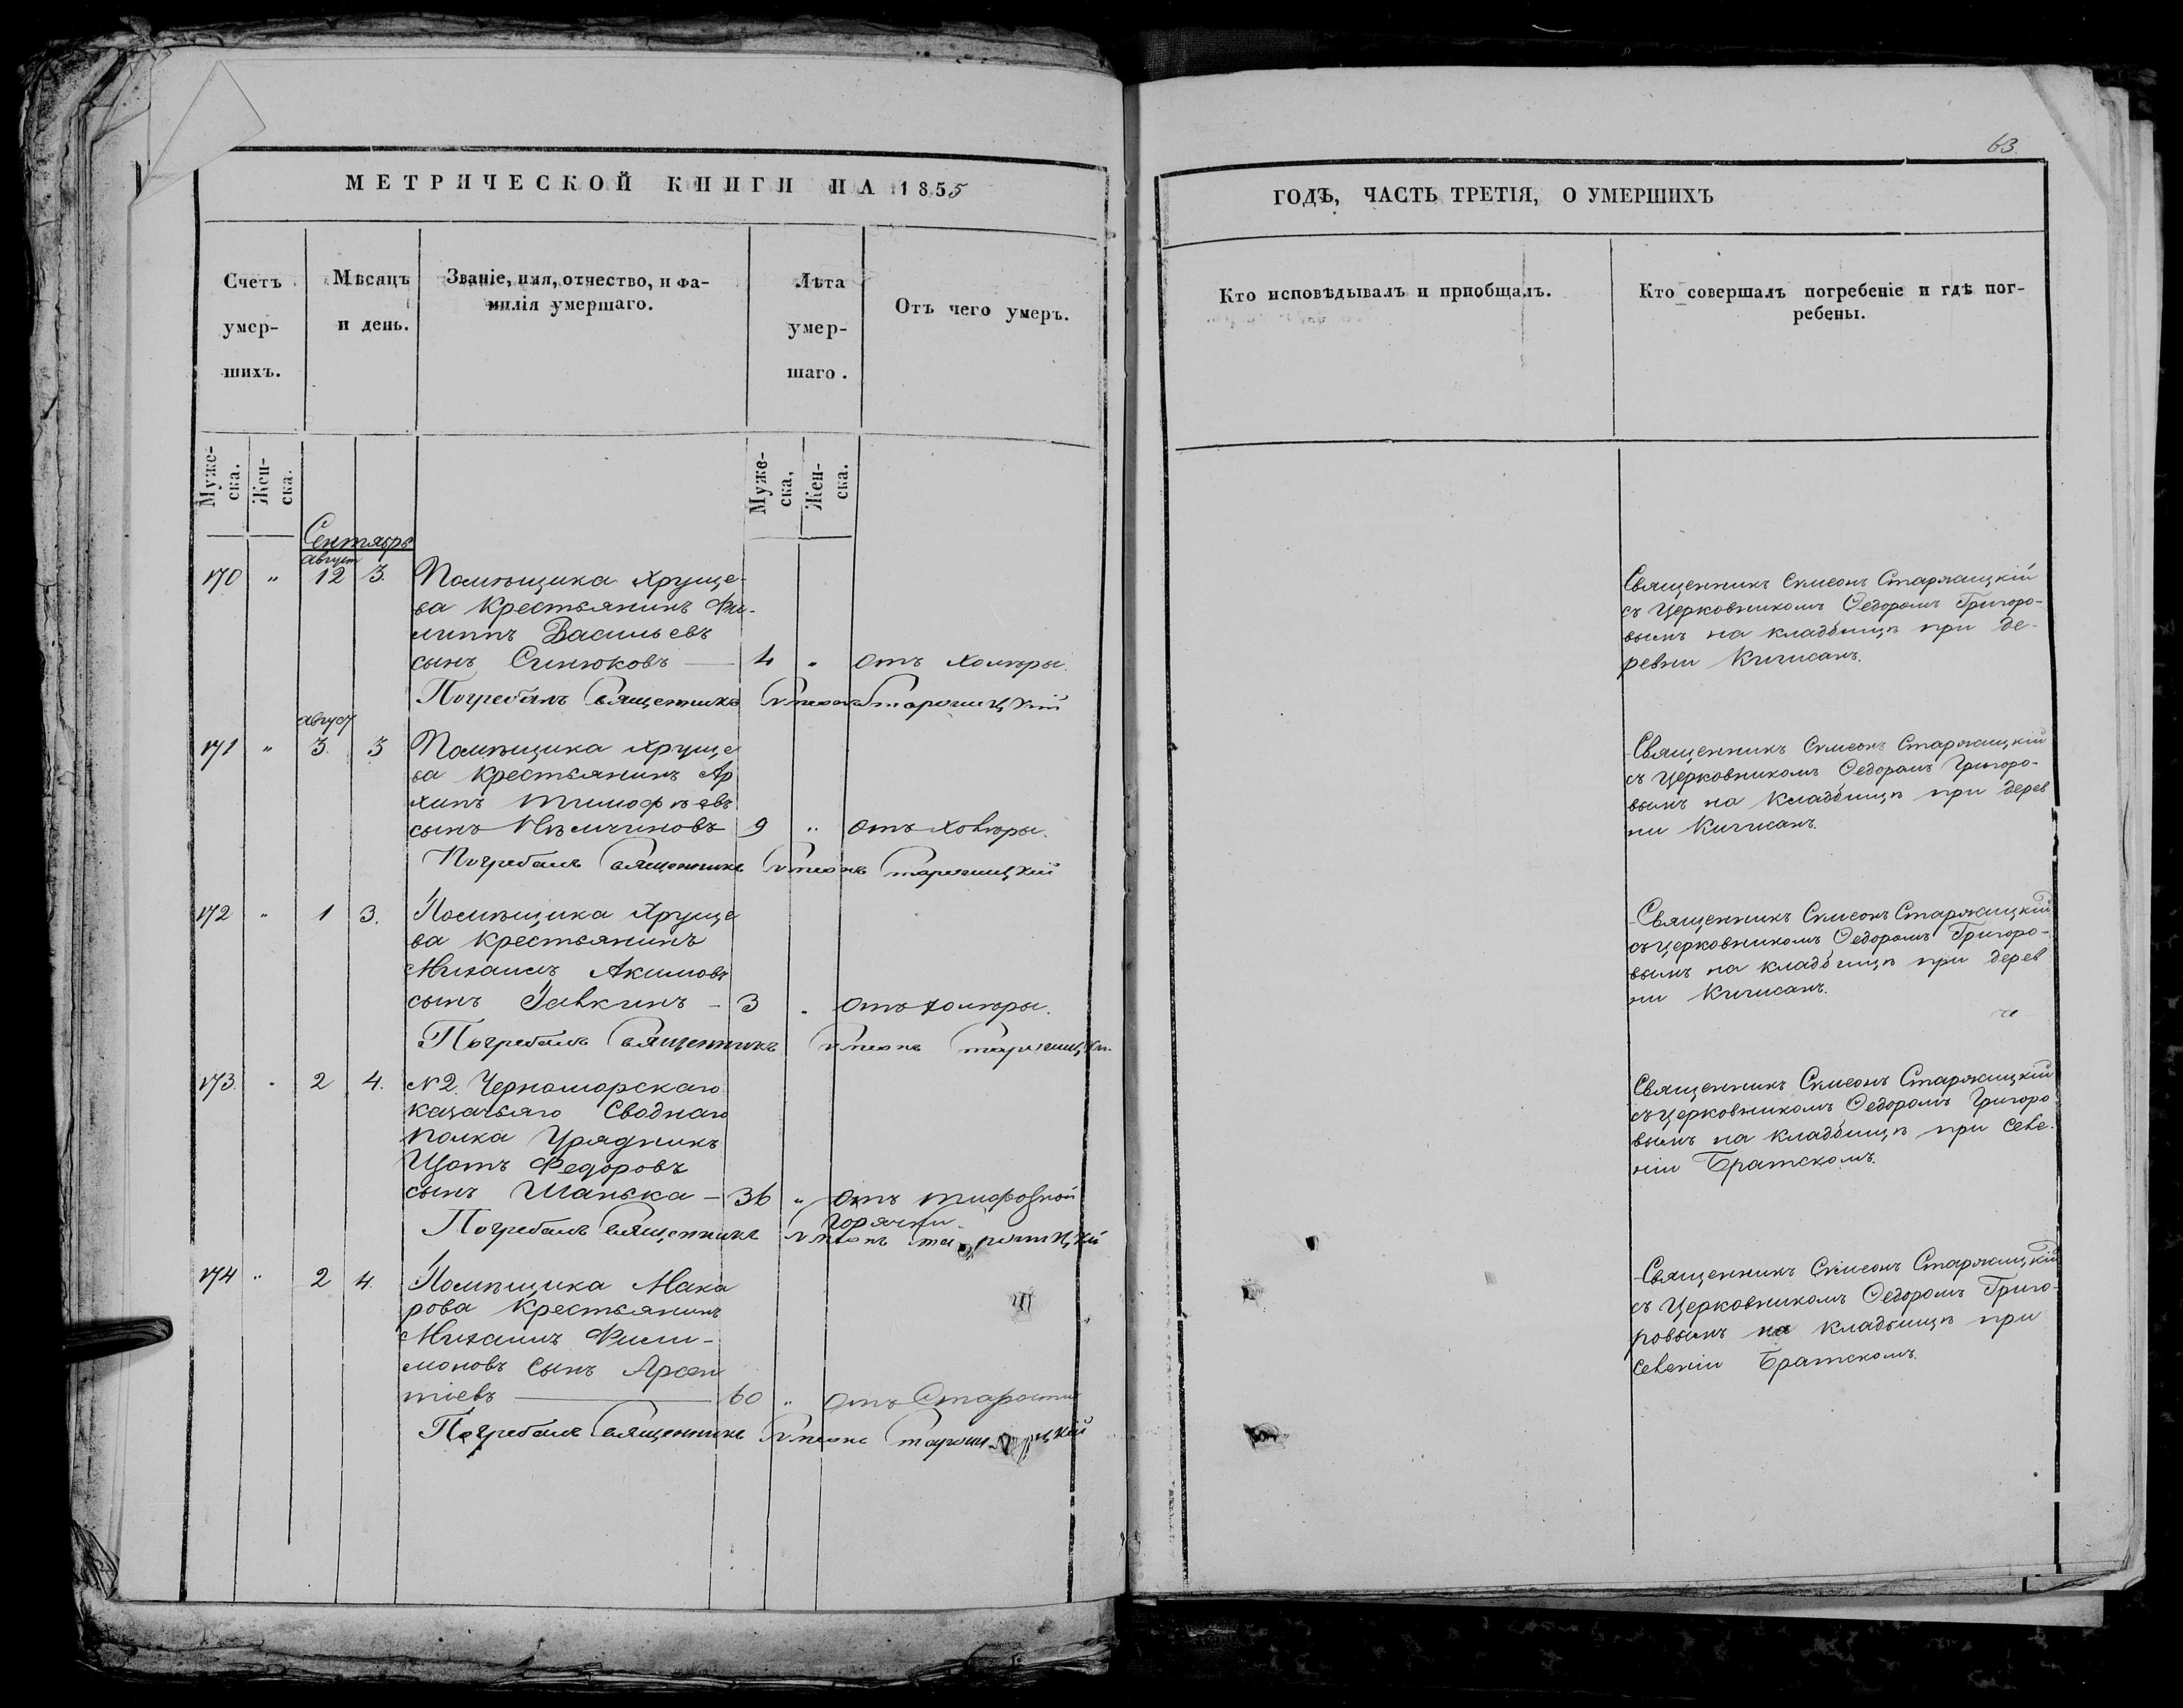 63.
МЕТРИЧЕСКОЙ КНИГИ НА 1855
ГОДѢ, ЧАСТЬ ТРЕТІЯ, О УМЕРШИХЪ
Счетъ
умер-
шихъ.
Мѣсяцъ
и день.
Званіе, имя, отчество, и фа-
милія умершаго.
Лѣта
умер-
шаго.
Отъ чего умеръ.
Кто исповѣдывалъ и пріобщалъ.
Кто совершалъ погребеніе и гдѣ пог-
ребены.
Муже-
ска.
Жен-
ска.
Муже-
ска,
Жен-
ска.
Сентябрь
август
170 " 12 3. Помѣщика Хруще-
ва Крестьянинъ Фи-
липпъ Васильевъ
сынъ Синюковъ — 4 " отъ холеры.
Погребалъ Священникъ Симеонъ Старжицкій
Священникъ Симеонъ Старжицкій
съ Церковникомъ Ѳедоромъ Григоро-
вымъ на кладбищѣ при де-
ревни Кичисанъ.
август
171 " 3. 3 Помѣщика Хруще
ва Крестьянинъ Ар
хипъ Тимофѣевъ
сынъ Нѣмчиновъ 9 " отъ холеры.
Погребалъ Священникъ Симеонъ Старжицкій
Священникъ Симеонъ Старжицкій
съ Церковникомъ Ѳедоромъ Григоро-
вымъ на Кладбищѣ при дерев
ни Кичисанъ.
172 " 1 3. Помѣщика Хруще
ва Крестьянинъ
Михаилъ Акимовъ
сынъ Савкинъ — 3 " отъ холеры.
Погребалъ Священникъ Симеонъ Старжицкій
Священникъ Симеонъ Старжицкій
съ церковникомъ Ѳедоромъ Григоро-
вымъ на кладбищѣ при дерев
ни Кичисанъ.
173. " 2 4. N2. Черноморскаго
казачьяго Своднаго
полка Урядникъ
Федоровъ
сынъ Шанька — 36 " отъ тифозной
горячки.
Погребалъ Священникъ Симеонъ Старжицкій
Священникъ Симеонъ Старжицкій
съ церковникомъ Ѳедоромъ Григоро
вымъ на кладбищѣ при селе-
ніи Братскомъ.
174 " 2 4. Помѣщика Мака
рова Крестьянинъ
Михаилъ Фили-
моновъ сынъ Арсен
тіевъ — 60 " отъ Старости
Погребалъ Священникъ Симеонъ Старжицкій
Священникъ Симеонъ Старжицкій
съ Церковникомъ Ѳедоромъ Григо-
ровымъ на кладбищѣ при
селеніи Братскомъ.